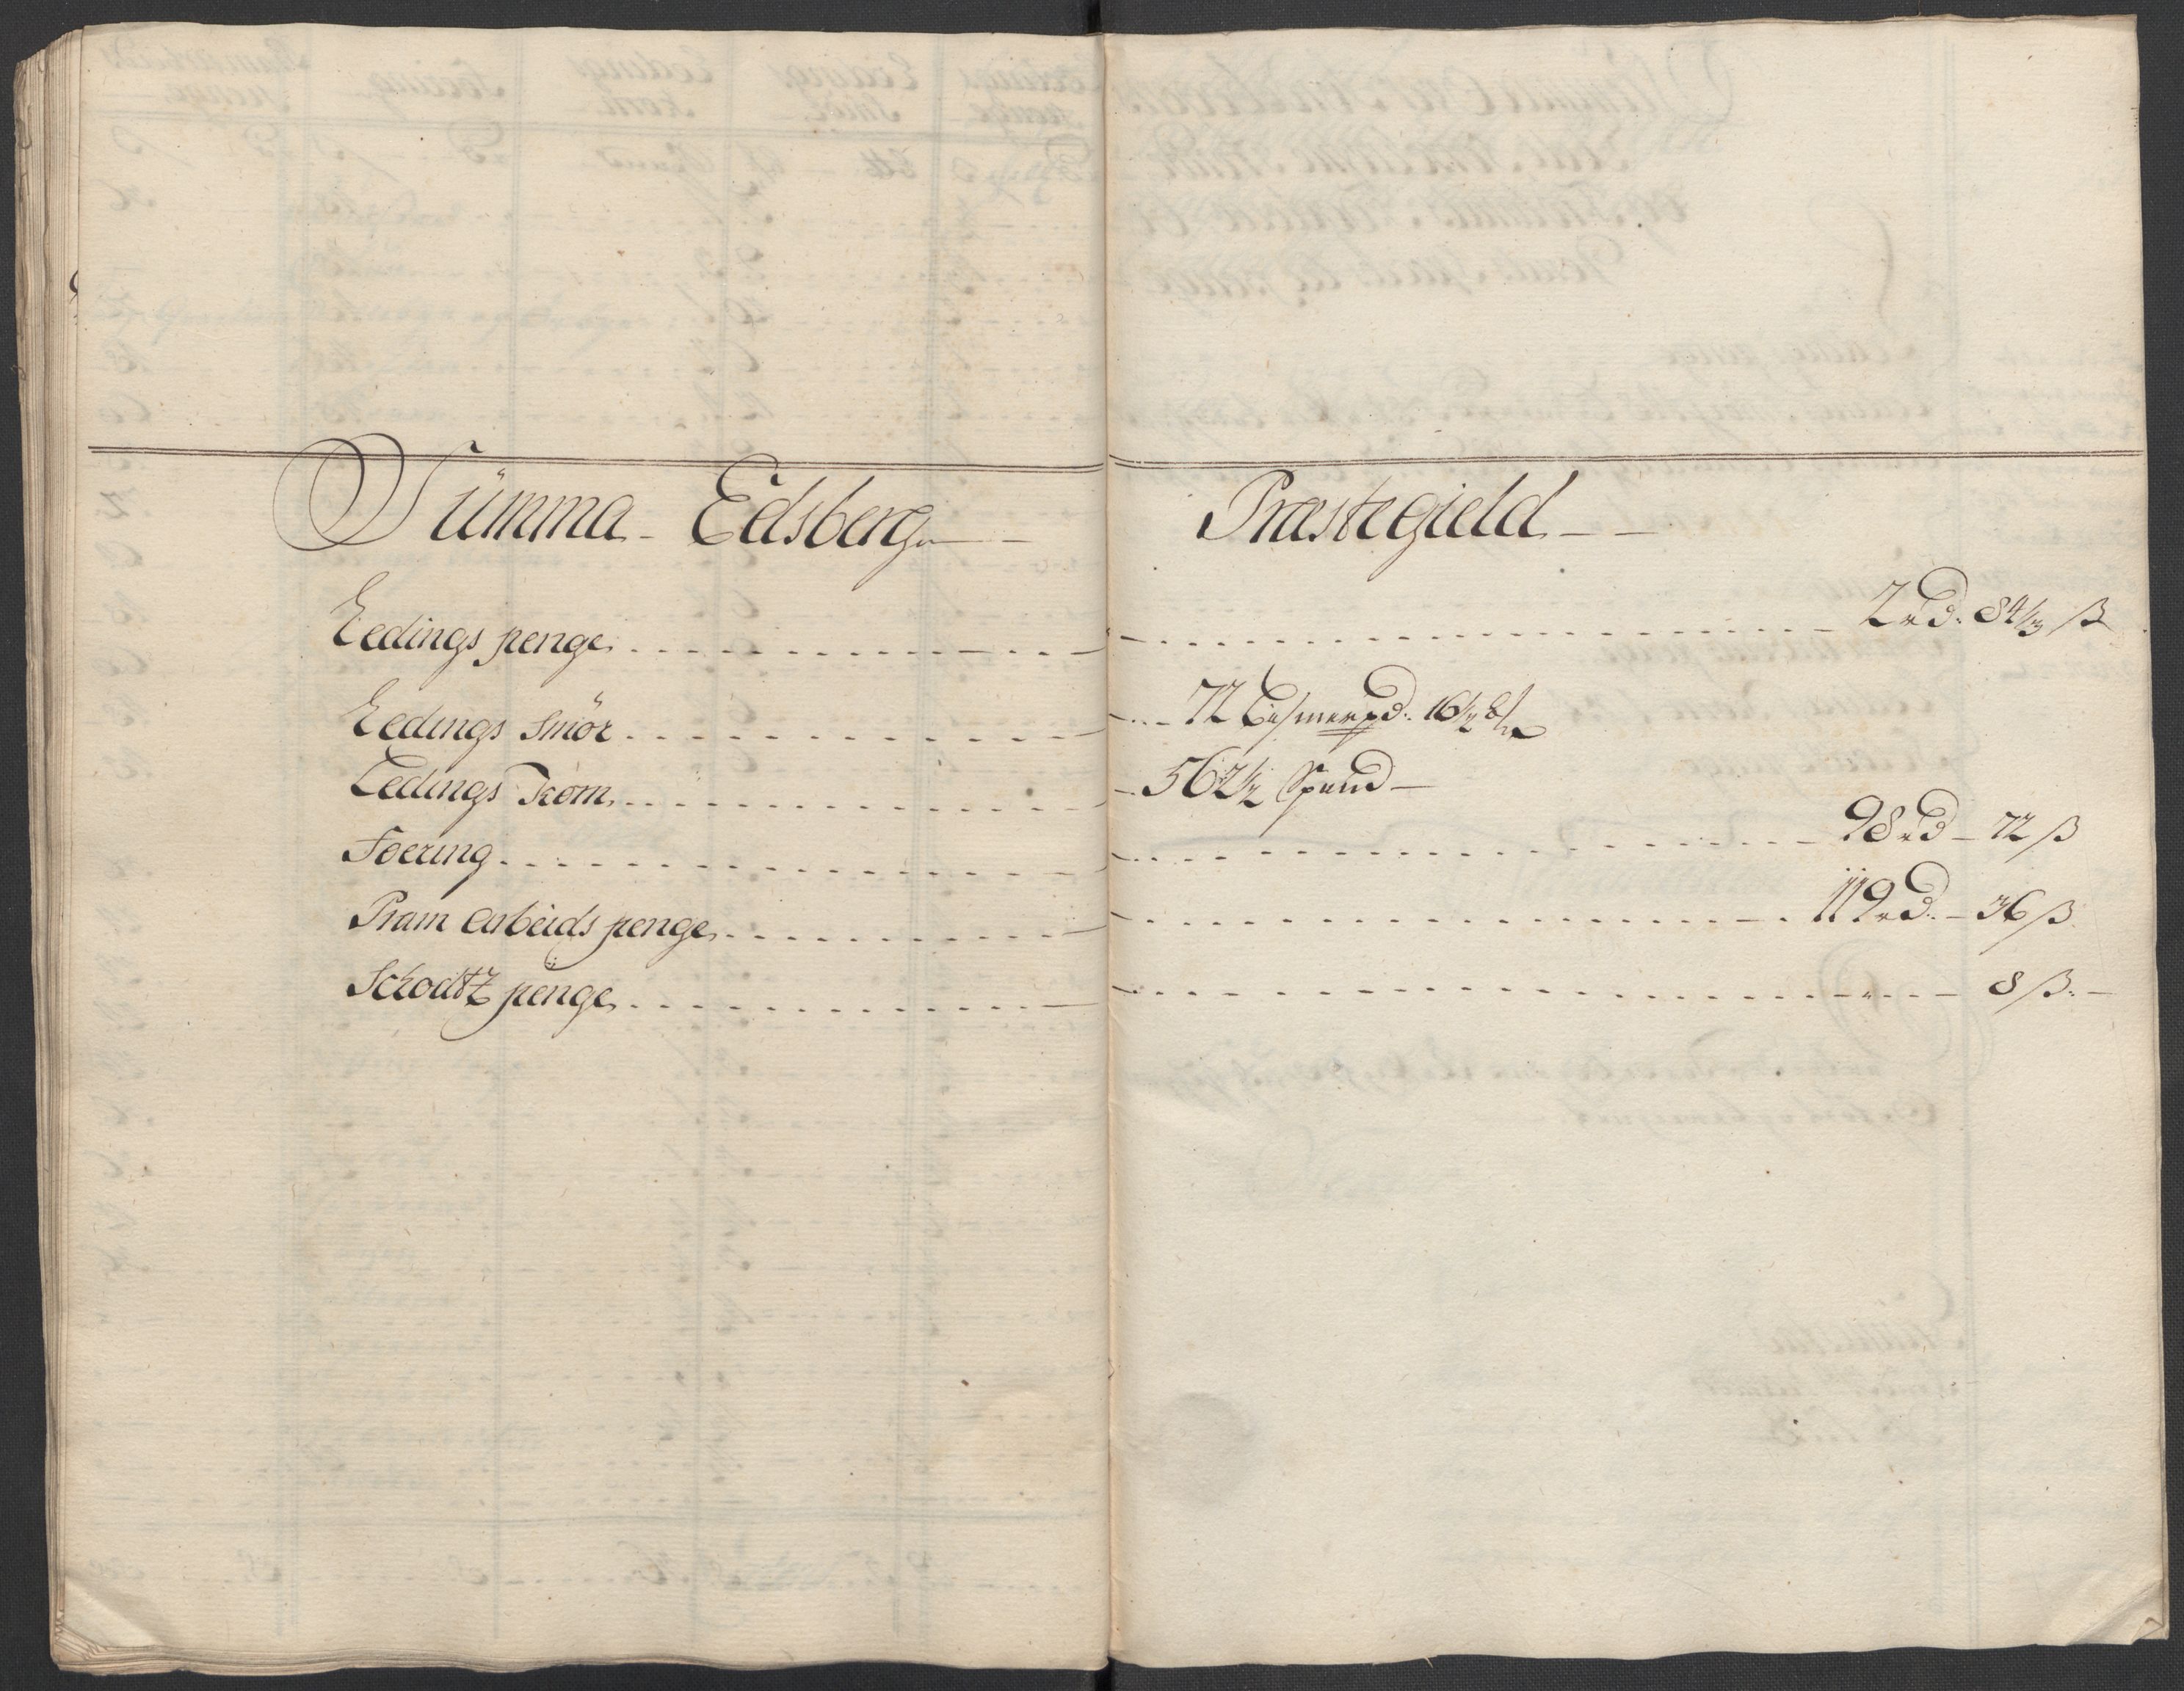 Summa Edsberg Præstegield
Ledings penge 2 rd: 84/3 β
Ledings Smör 72 Bismerpd: 16½
Ledings Korn 562½ Spand
Foering 98 rd 72 β
Pram Arbeids penge 119 rd: 36 β
Schodtz penge 8 β: